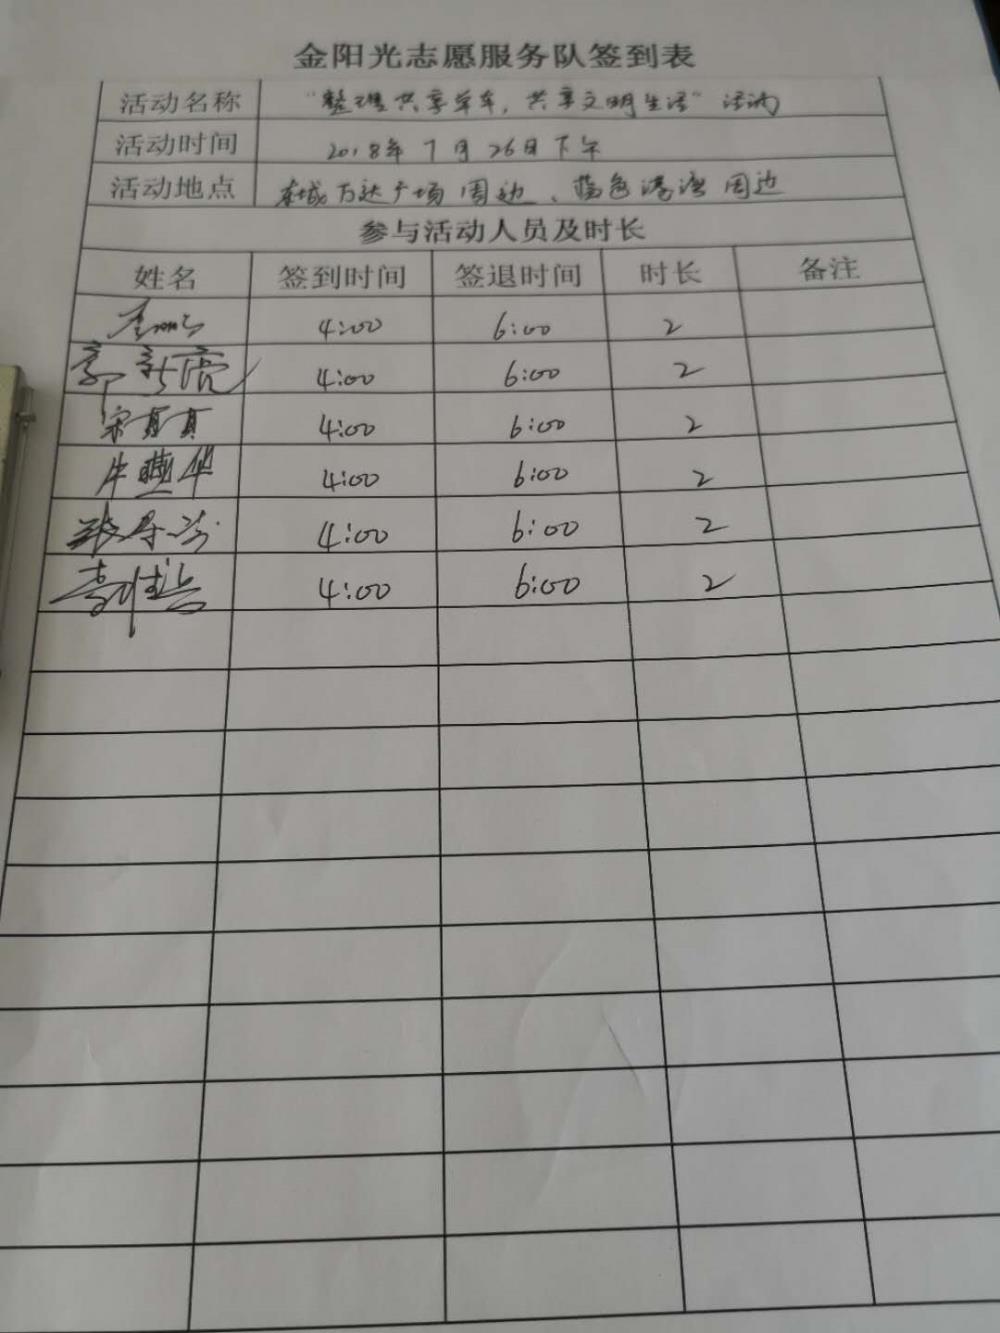 金阳光志愿服务队签到表
活动名称 "整理共享单车，共享文明生活"活动
活动时间 2018年7月26日下午
活动地点 东城万达广场周边、蓝色港湾周边
参与活动人员及时长
姓名 签到时间 签退时间 时长 备注
4:00 6:00 2
郭新亮 4:00 6:00 2
宋真真 4:00 6:00 2
牛曉华 4:00 6:00 2
4:00 6:00 2
4:00 6:00 2